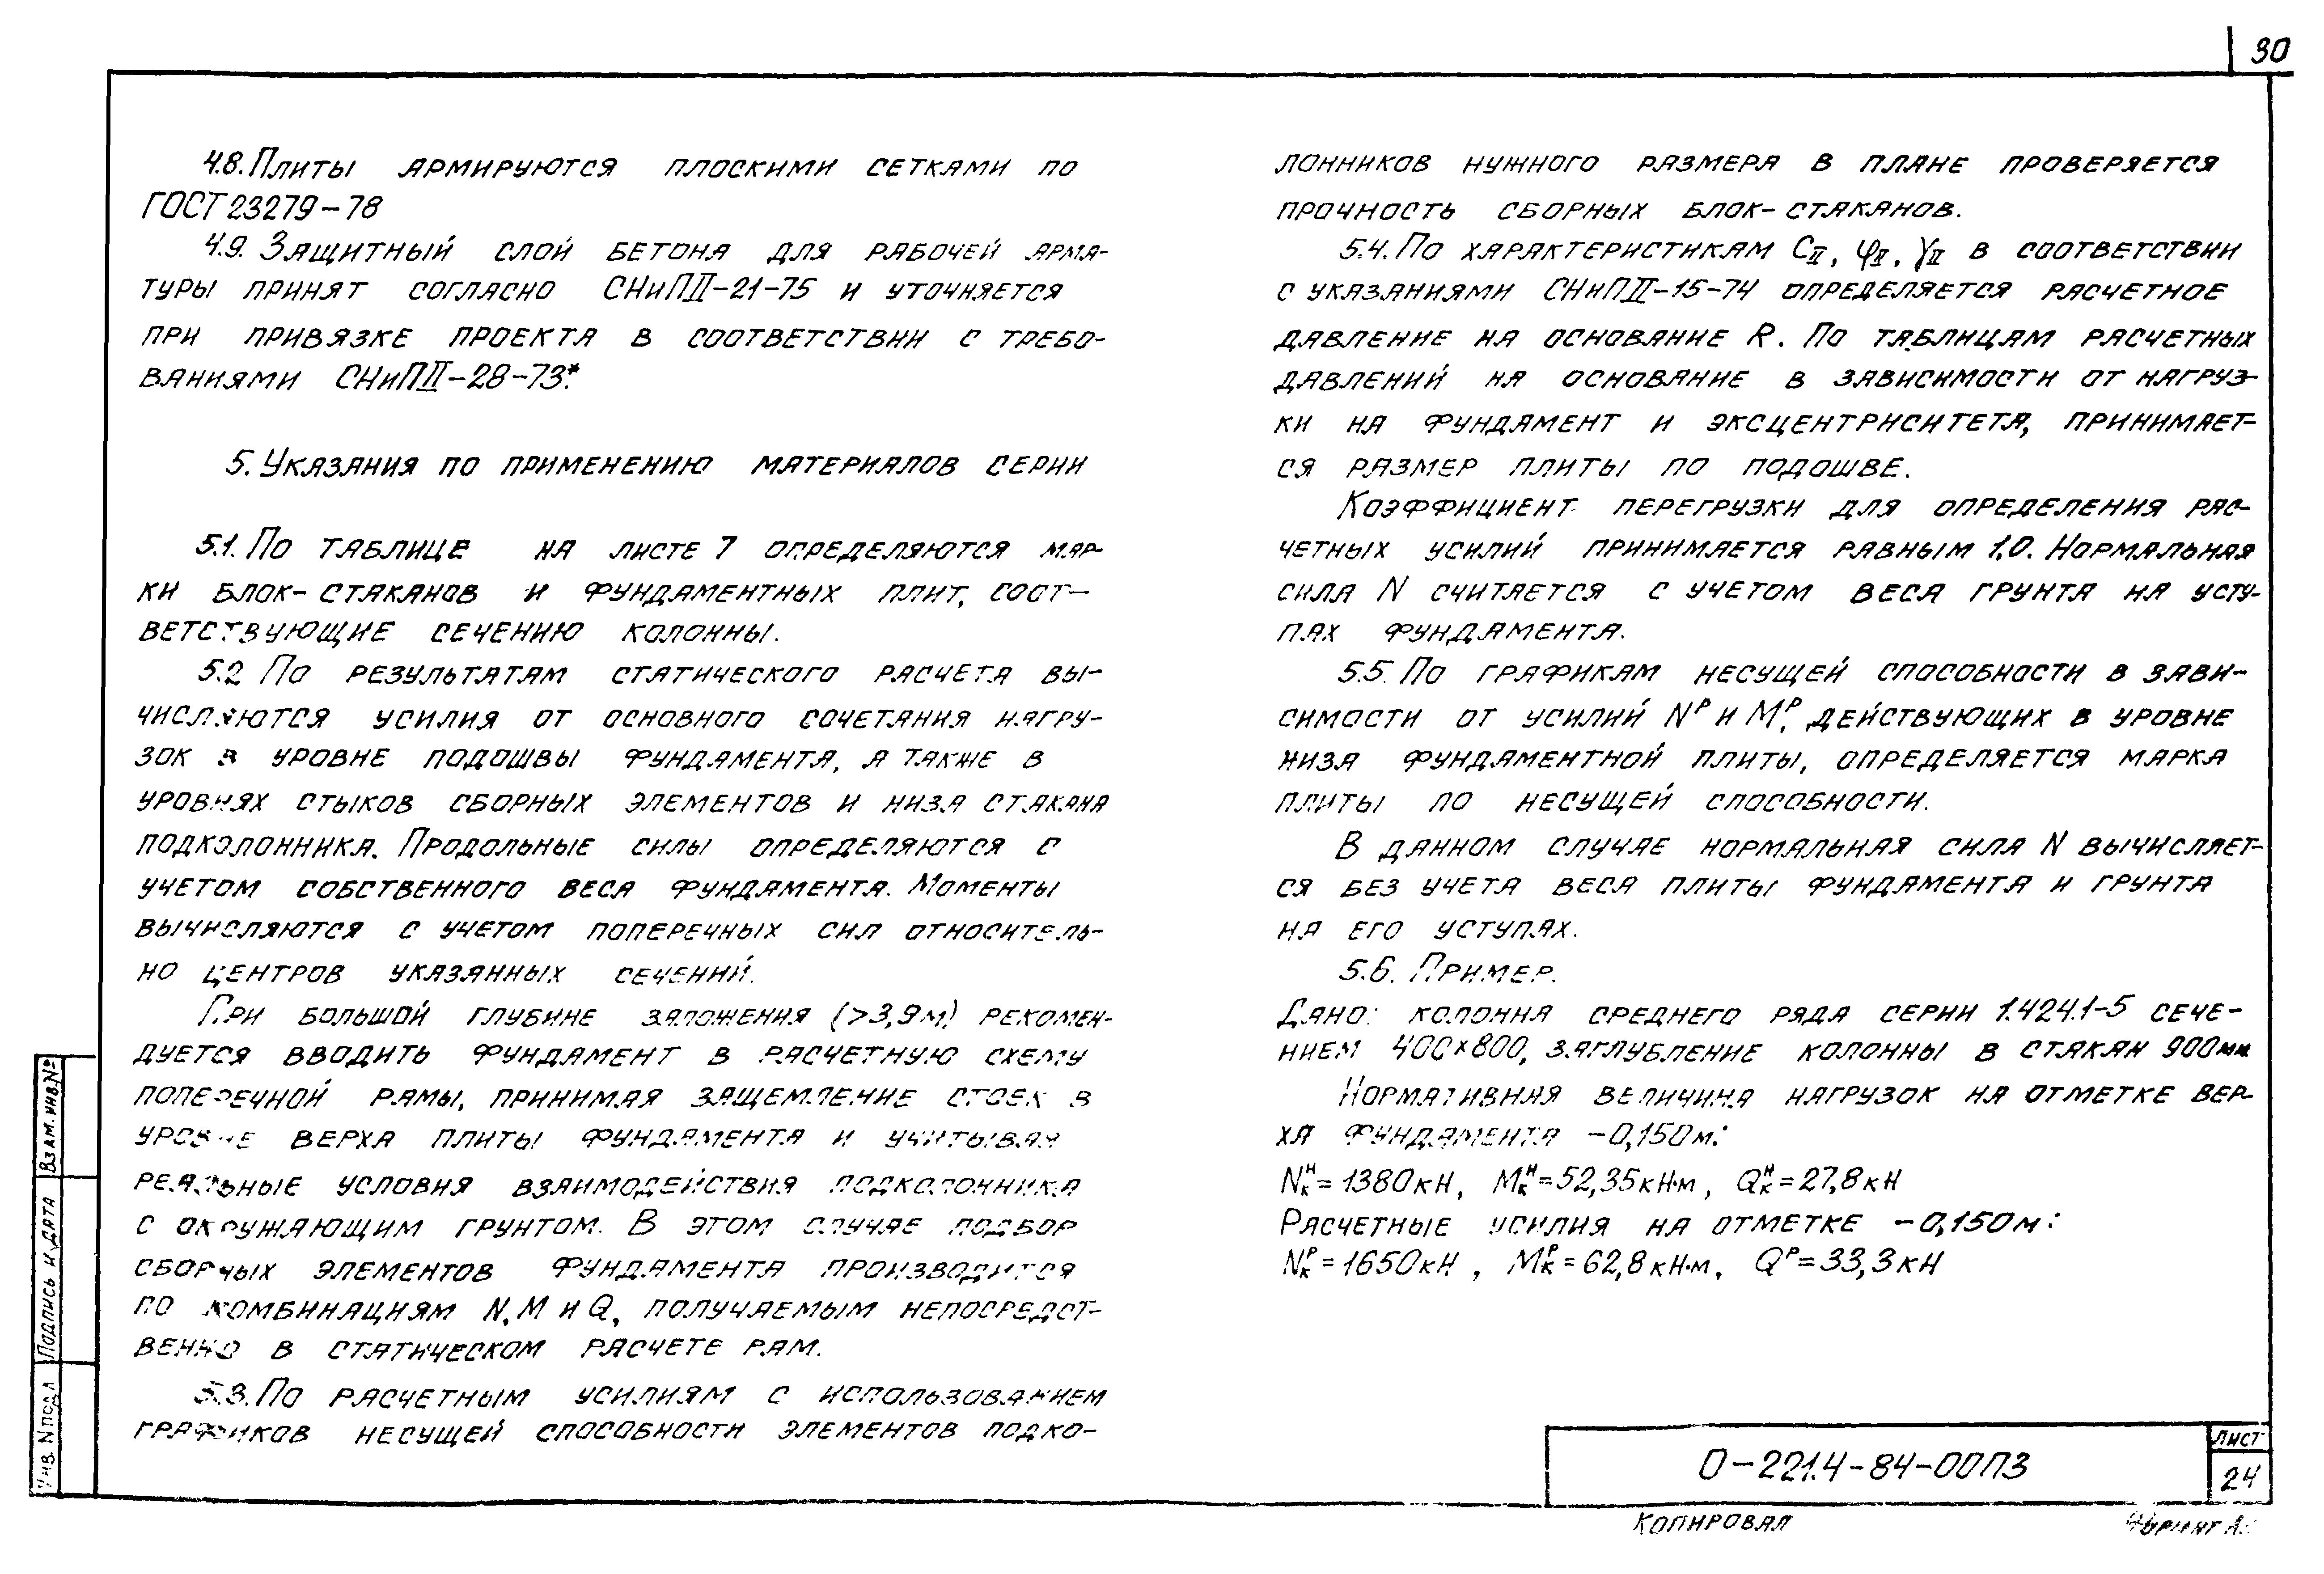 30
4.8. Плиты армируются плоскими сетками по
ГОСТ 23279-78
4.9. Защитный слой бетона для рабочей арма-
туры принят согласно СНиП II-21-75 и уточняется
при привязке проекта в соответствии с требо-
ваниями СНиП II-28-73*.
5. Указания по применению материалов серии
5.1. По таблице на листе 7 определяются мар-
ки блок-стаканов и фундаментных плит, соот-
ветствующие сечению колонны.
5.2 По результатам статического расчета вы-
числяются усилия от основного сочетания нагру-
зок в уровне подошвы фундамента, а также в
уровнях стыков сборных элементов и низа стакана
подколонника. Продольные силы определяются с
учетом собственного веса фундамента. Моменты
вычисляются с учетом поперечных сил относитель-
но центров указанных сечений.
При большой глубине заложения (>3,9м) рекомен-
дуется вводить фундамент в расчетную схему
поперечной рамы, принимая защемление стоек в
уровне верха плиты фундамента и учитывая
реальные условия взаимодействия подколонника
с окружающим грунтом. В этом случае подбор
сборных элементов фундамента производится
по комбинациям N, M и Q, получаемым непосредст-
венно в статическом расчете рам.
5.3. По расчетным усилиям с использованием
графиков несущей способности элементов подко-
лонников нужного размера в плане проверяется
прочность сборных блок-стаканов.
5.4. По характеристикам C_II, φ_II, γ_II в соответствии
с указаниями СНиП II-15-74 определяется расчетное
давление на основание R. По таблицам расчетных
давлений на основание в зависимости от нагруз-
ки на фундамент и эксцентриситета, принимает-
ся размер плиты по подошве.
Коэффициент перегрузки для определения рас-
четных усилий принимается равным 1,0. Нормальная
сила N считается с учетом веса грунта на усту-
пах фундамента.
5.5. По графикам несущей способности в зави-
симости от усилий Nᴾ и Mᴾ, действующих в уровне
низа фундаментной плиты, определяется марка
плиты по несущей способности.
В данном случае нормальная сила N вычисляет-
ся без учета веса плиты фундамента и грунта
на его уступах.
5.6. Пример.
Дано: колонна среднего ряда серии 1.424.1-5 сече-
нием 400×800, заглубление колонны в стакан 900мм.
Нормативная величина нагрузок на отметке вер-
ха фундамента -0,150м:
Nкᴴ=1380кН, Mкᴴ=52,35кН·м, Qкᴴ=27,8кН
Расчетные усилия на отметке -0,150м:
Nкᴾ=1650кН, Mкᴾ=62,8кН·м, Qᴾ=33,3кН
Взам. инв.№
Подпись и дата
Инв. N подл
0-221.4-84-00ПЗ
Лист
24
Копировал
Формат